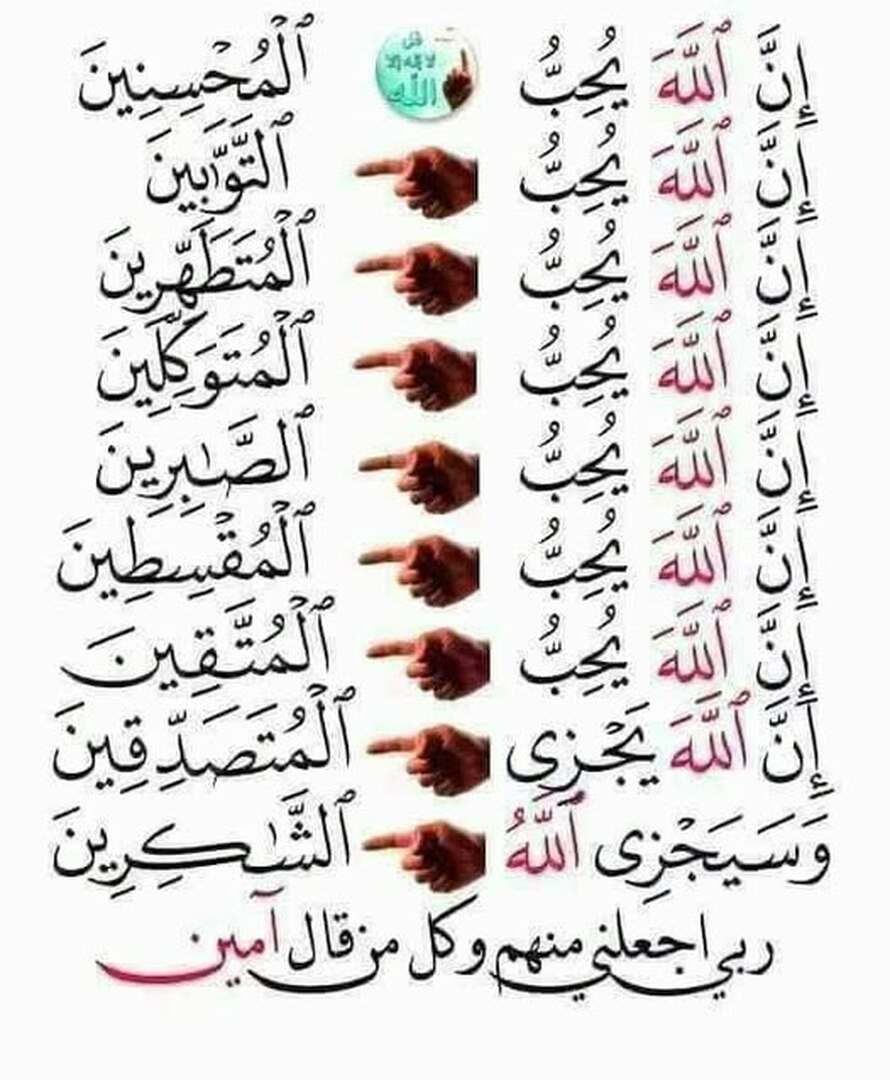 إِنَّ ٱللَّهَ يُحِبُّ قل لا إله إلا الله ٱلْمُحْسِنِينَ
إِنَّ ٱللَّهَ يُحِبُّ ٱلتَّوَّٰبِينَ
إِنَّ ٱللَّهَ يُحِبُّ ٱلْمُتَطَهِّرِينَ
إِنَّ ٱللَّهَ يُحِبُّ ٱلْمُتَوَكِّلِينَ
إِنَّ ٱللَّهَ يُحِبُّ ٱلصَّٰبِرِينَ
إِنَّ ٱللَّهَ يُحِبُّ ٱلْمُقْسِطِينَ
إِنَّ ٱللَّهَ يُحِبُّ ٱلْمُتَّقِينَ
إِنَّ ٱللَّهَ يَجْزِى ٱلْمُتَصَدِّقِينَ
وَسَيَجْزِى ٱللَّهُ ٱلشَّٰكِرِينَ
ربي اجعلني منهم وكل من قال آمين